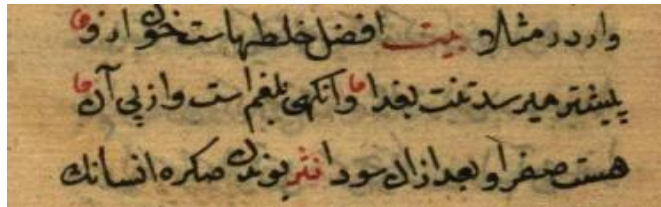 وارد در مثلا بيت افضل خلطهاست خون ازو
پيشتر ميرسد تنت بغدا وانكهى بلغم است واز پى آن
هست صفرا و بعد ازان سودا نثر بوندن صكره انسانك